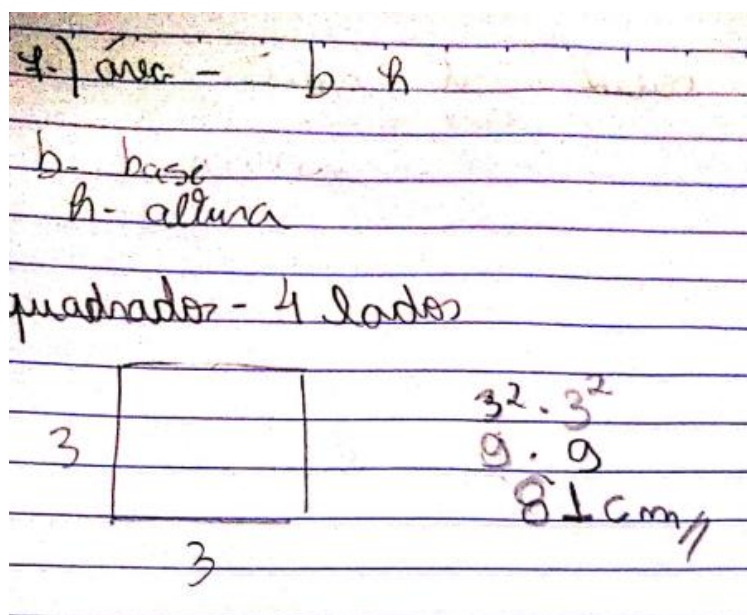 7-) área - b h
b- base
h- altura
quadrados - 4 lados
3² . 3²
3
9 . 9
81 cm //
3